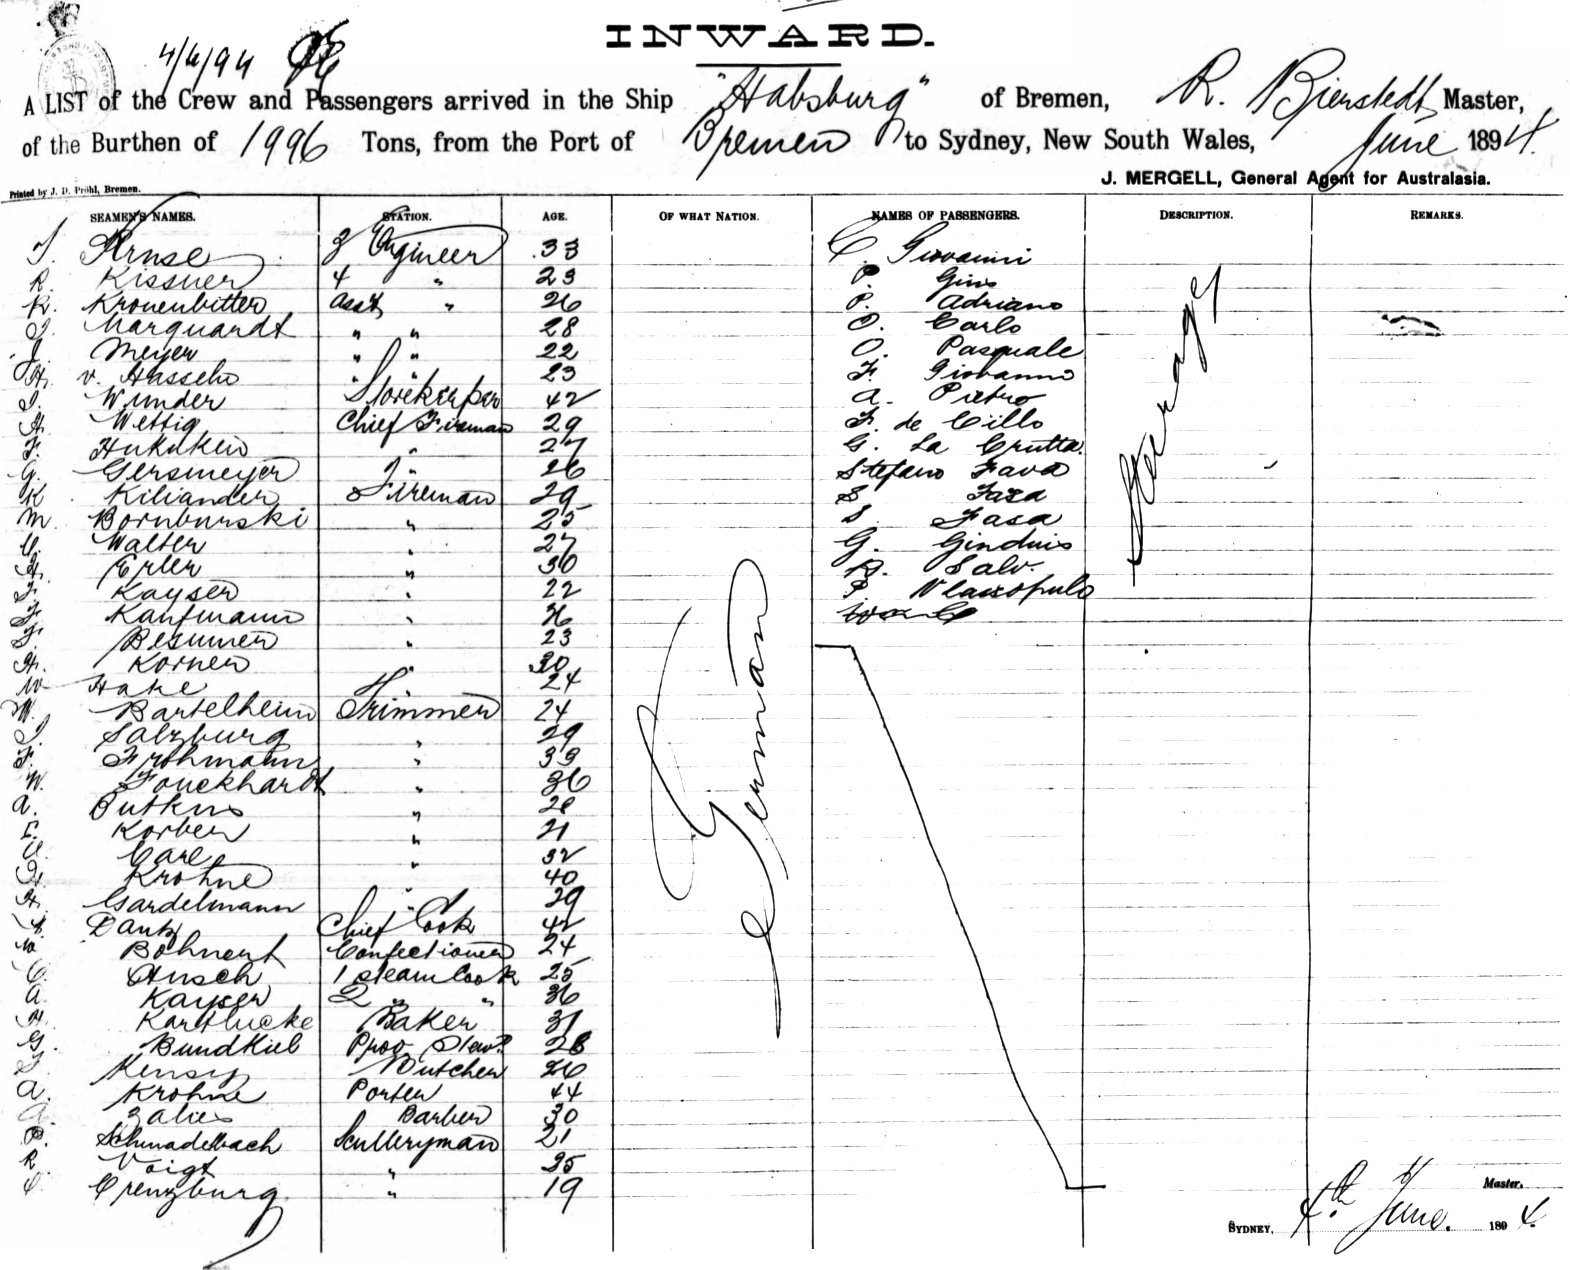 INWARD.
4/6/94
A LIST of the Crew and Passengers arrived in the Ship "Habsburg" of Bremen, R. Bierstedt Master,
of the Burthen of 1996 Tons, from the Port of Bremen to Sydney, New South Wales, June 1894.
Printed by J. D. Pröhl, Bremen.
J. MERGELL, General Agent for Australasia.
SEAMEN'S NAMES. STATION. AGE. OF WHAT NATION. NAMES OF PASSENGERS. DESCRIPTION. REMARKS.
Kruse 3 Engineer 33 C. Giovanni
R. Kissner 4 " 23 P. Gino
K. Kronenbitter Asst " 26 P. Adriano
Marquardt " " 28 O. Carlo
J. Meyer " " 22 O. Pasquale
H. v. Hasseln " " 23 F. Giovanni
Wunder Storekeeper 42 A. Pietro
H. Wettig Chief Fireman 29 F. de Cillo
F. " 27 G. La Crutta
G. Gersmeyer " 26 Stefano Fava
K. Kiliander Fireman 29 S Faza
M. Bornburski " 25 S. Fasa
Walter " 27 G.
H. Erler " 30 Salv.
F. Kayser " 22
F. Kaufmann " 26
" 23
H. Korner " 30
W Hake " 24
W. Bartelheim Trimmer 24
Salzburg " 29
F. Frohmann " 33
W. Fouckhardt " 36
A. Butkus " 28
Korber " 21
Carl " 32
H. Krohne " 40
H. Gardelmann " 29
Dantz Chief Cook 42
W. Bohnert Confectioner 24
C. Husch 1 steam Cook 25
A. Kayser 2 " " 36
H. Karthucke Baker 31
G. Bundkiel Prov. Stew? 28
Butcher 26
A. Krohne Porter 44
A. Barber 30
P. Schnadelbach Sculleryman 21
R. Voigt " 25
C. Crenzburg " 19
German
Steerage
Master.
SYDNEY, 4th June. 1894.